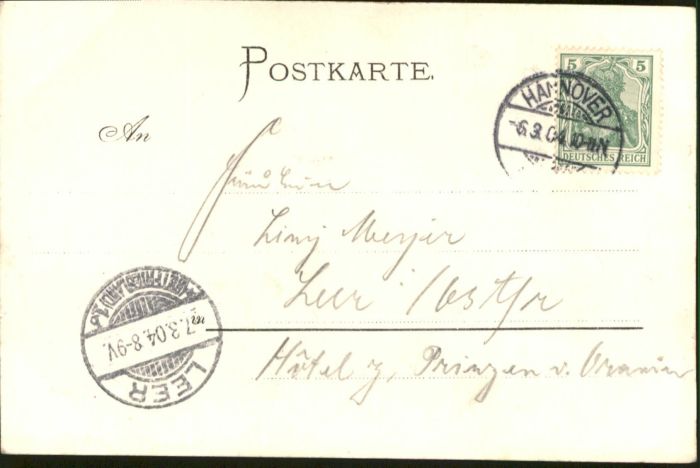 POSTKARTE.
5 5
DEUTSCHES REICH
HANNOVER
-6.3.04. 10-11N
An
Fräulein
Meyer
Leer /Ostfr
Hôtel z. Prinzen v. Oranien
7.3.04. 8-9V.
LEER